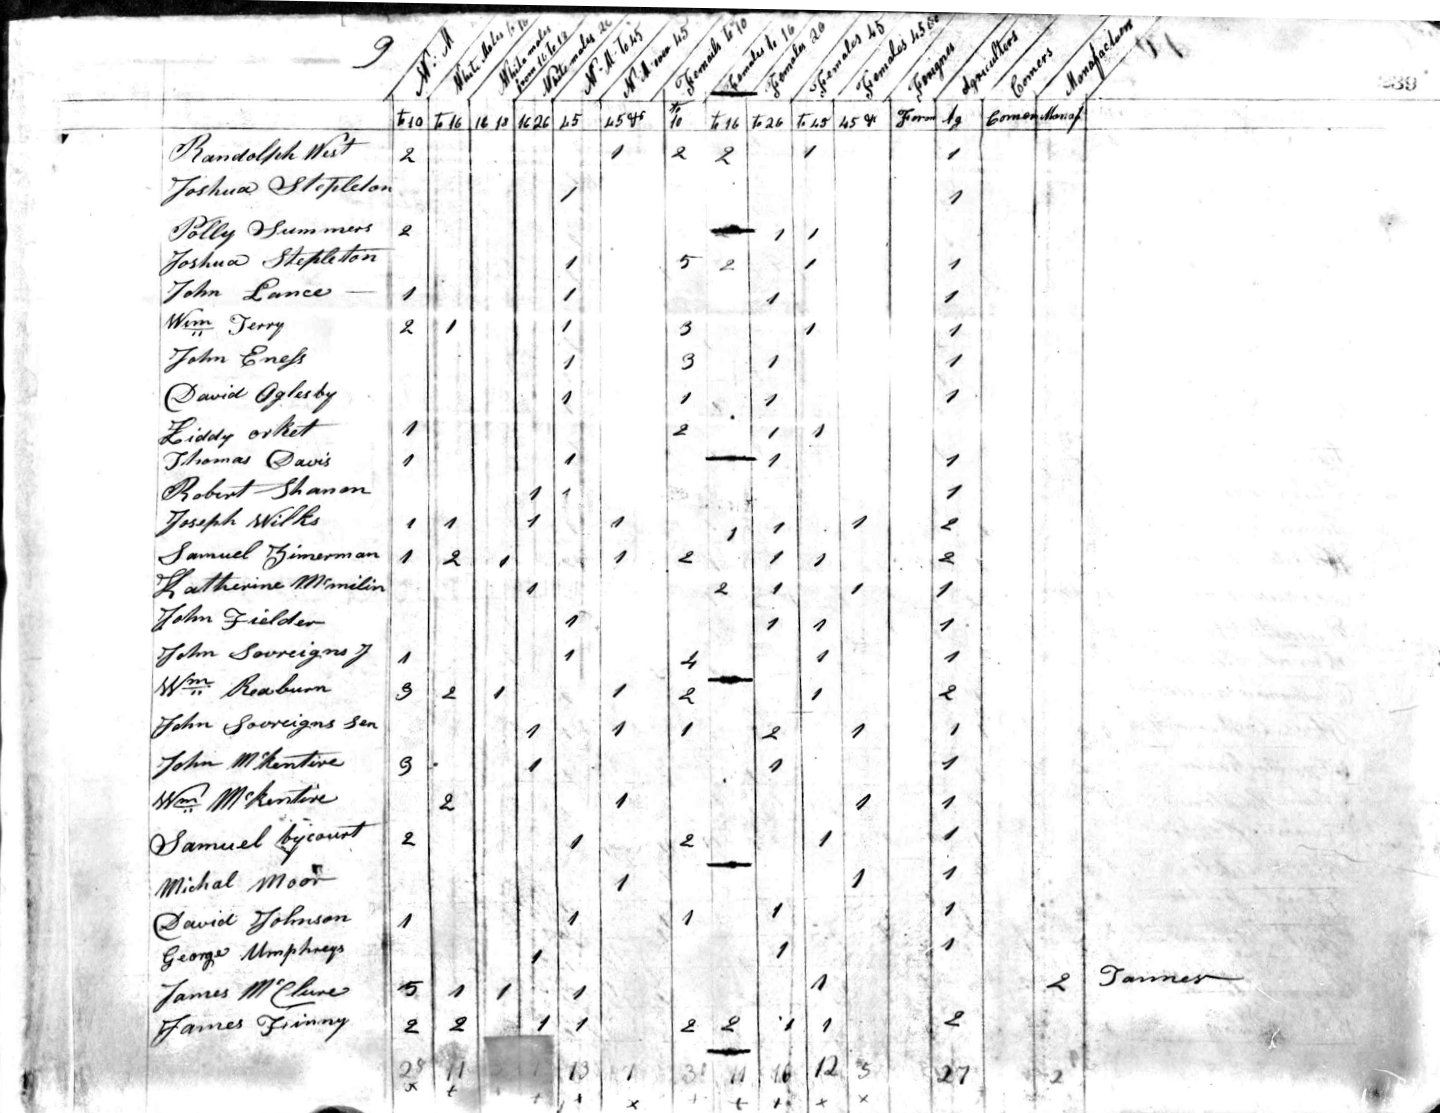 9 Nº. M White Males to 16 White males from 16 to 18 White males 26 Nº. M. to 45 Nº. M. over 45 Females to 10 Females to 16 Females 26 Females 45 Females 45 &c Foregners Agriculters Comers Manufactuers
to 10 to 16 16 18 16 26 45 45 &c to 10 to 16 to 26 to 45 45 & Foren Ag Comers Manuf
Randolph West 2 1 2 2 1 1
Joshua Stepleton 1 1
Polly Summers 2 1 1
Joshua Stepleton 1 5 2 1 1
John Lance 1 1 1 1
Wm Terry 2 1 1 3 1 1
John Eness 1 3 1 1
David Oglesby 1 1 1 1
Liddy orket 1 2 1 1
Thomas Davis 1 1 1 1
Robert Shanon 1 1 1
Joseph Wilks 1 1 1 1 1 1 1 2
Samuel Zimerman 1 2 1 1 2 1 1 2
Katherine Mcmilin 1 2 1 1 1
John Fielder 1 1 1 1
John Sovreigns J 1 1 4 1 1
Wm Reaburn 3 2 1 1 2 1 2
John Sovreigns Sen 1 1 1 2 1 1
John McKentire 3 1 1 1
Wm McKentire 2 1 1 1
Samuel bycourt 2 1 2 1 1
Michal Moor 1 1 1
David Johnson 1 1 1 1 1
George Umphreys 1 1 1
James McClure 5 1 1 1 1 2 Tanner
James Finny 2 2 1 1 2 2 1 1 2
11 13 11 16 12 27 2